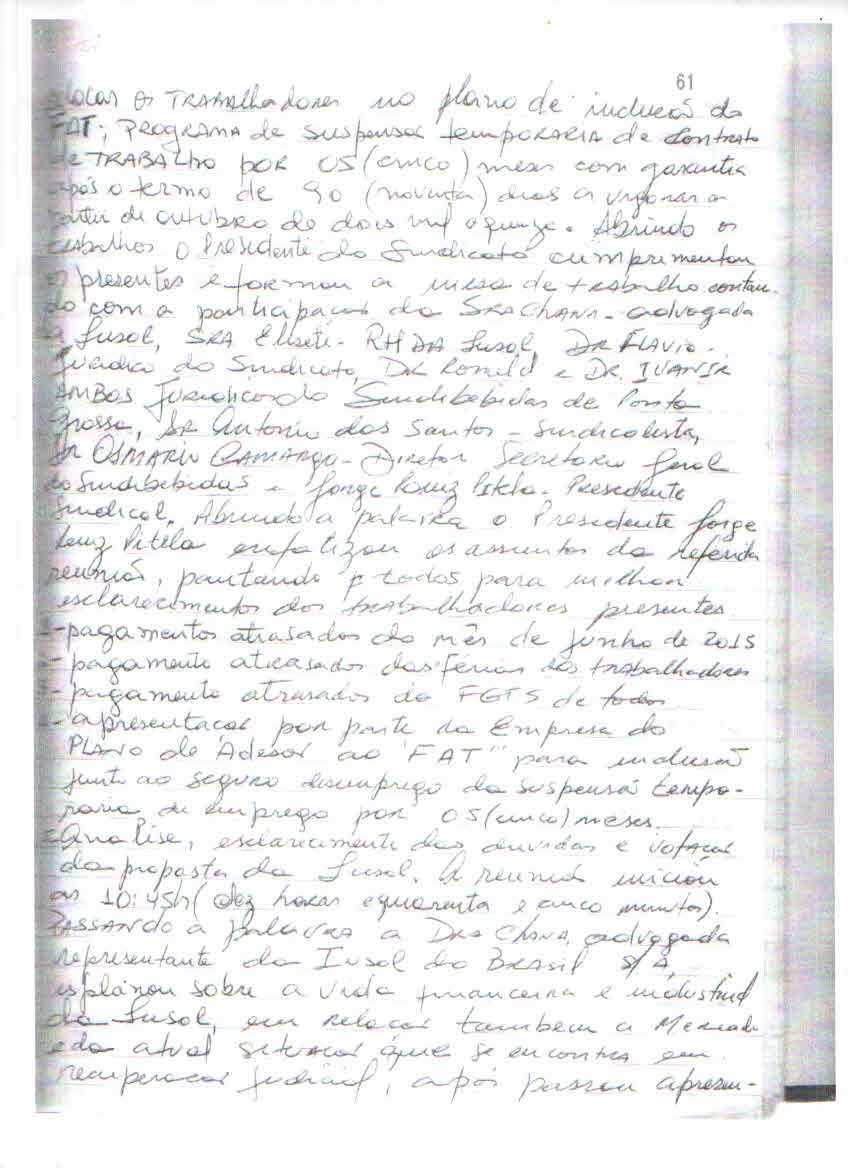 61
alocar os TRABAlhadores no plano de inclusão do
FAT; PROGRAMA de suspensão temporARIA de contrato
de TRABAlho por 05 (cinco) meses com garantia
após o termo de 90 (noventa) dias a vigorar a
partir de outubro de dois mil e quinze. Abrindo os
trabalhos o Presidente do Sindicato cumprimentou
os presentes e formou a mesa de trabalho contan-
do com a participação da SRA Chana - advogada
da Insol, SRA Elisete - RH DA Insol, DR FLAVIO -
Juridico do Sindicato, DR Ronald e DR. IVANIR
AMBOS Juridicos do Sindibebidas de Ponta
Grossa, SR Antonio dos Santos - Sindicalista,
SR OSMARIO CAMARGO - Diretor Secretario Geral
do Sindibebidas e Jorge Luiz Pitela - Presidente
Sindical. Abrindo a palavra o Presidente Jorge
Luiz Pitela enfatizou os assuntos da referida
reunião, pautando p todos para melhor
esclarecimentos dos trabalhadores presentes.
- pagamentos atrasados do mês de junho de 2015
- pagamento atrasados das ferias dos trabalhadores
- pagamento atrasados do FGTS de todos
- apresentação por parte da Empresa do
PLANO de Adesão ao "FAT" para inclusão
junto ao seguro desemprego da suspensão tempo-
raria de emprego por 05 (cinco) meses.
- Analise, esclarecimento das duvidas e votação
da proposta da Insol. A reunião iniciou
as 10:45h (dez horas e quarenta e cinco minutos).
PASSANDO a palavra a DRA Chana, advogada
representante da Insol do BRASIL S/A
esplanou sobre a vida financeira e industrial
da Insol, em relação tambem a Mercado
e da atual situação que se encontra em
recuperação judicial, após passou apresen-